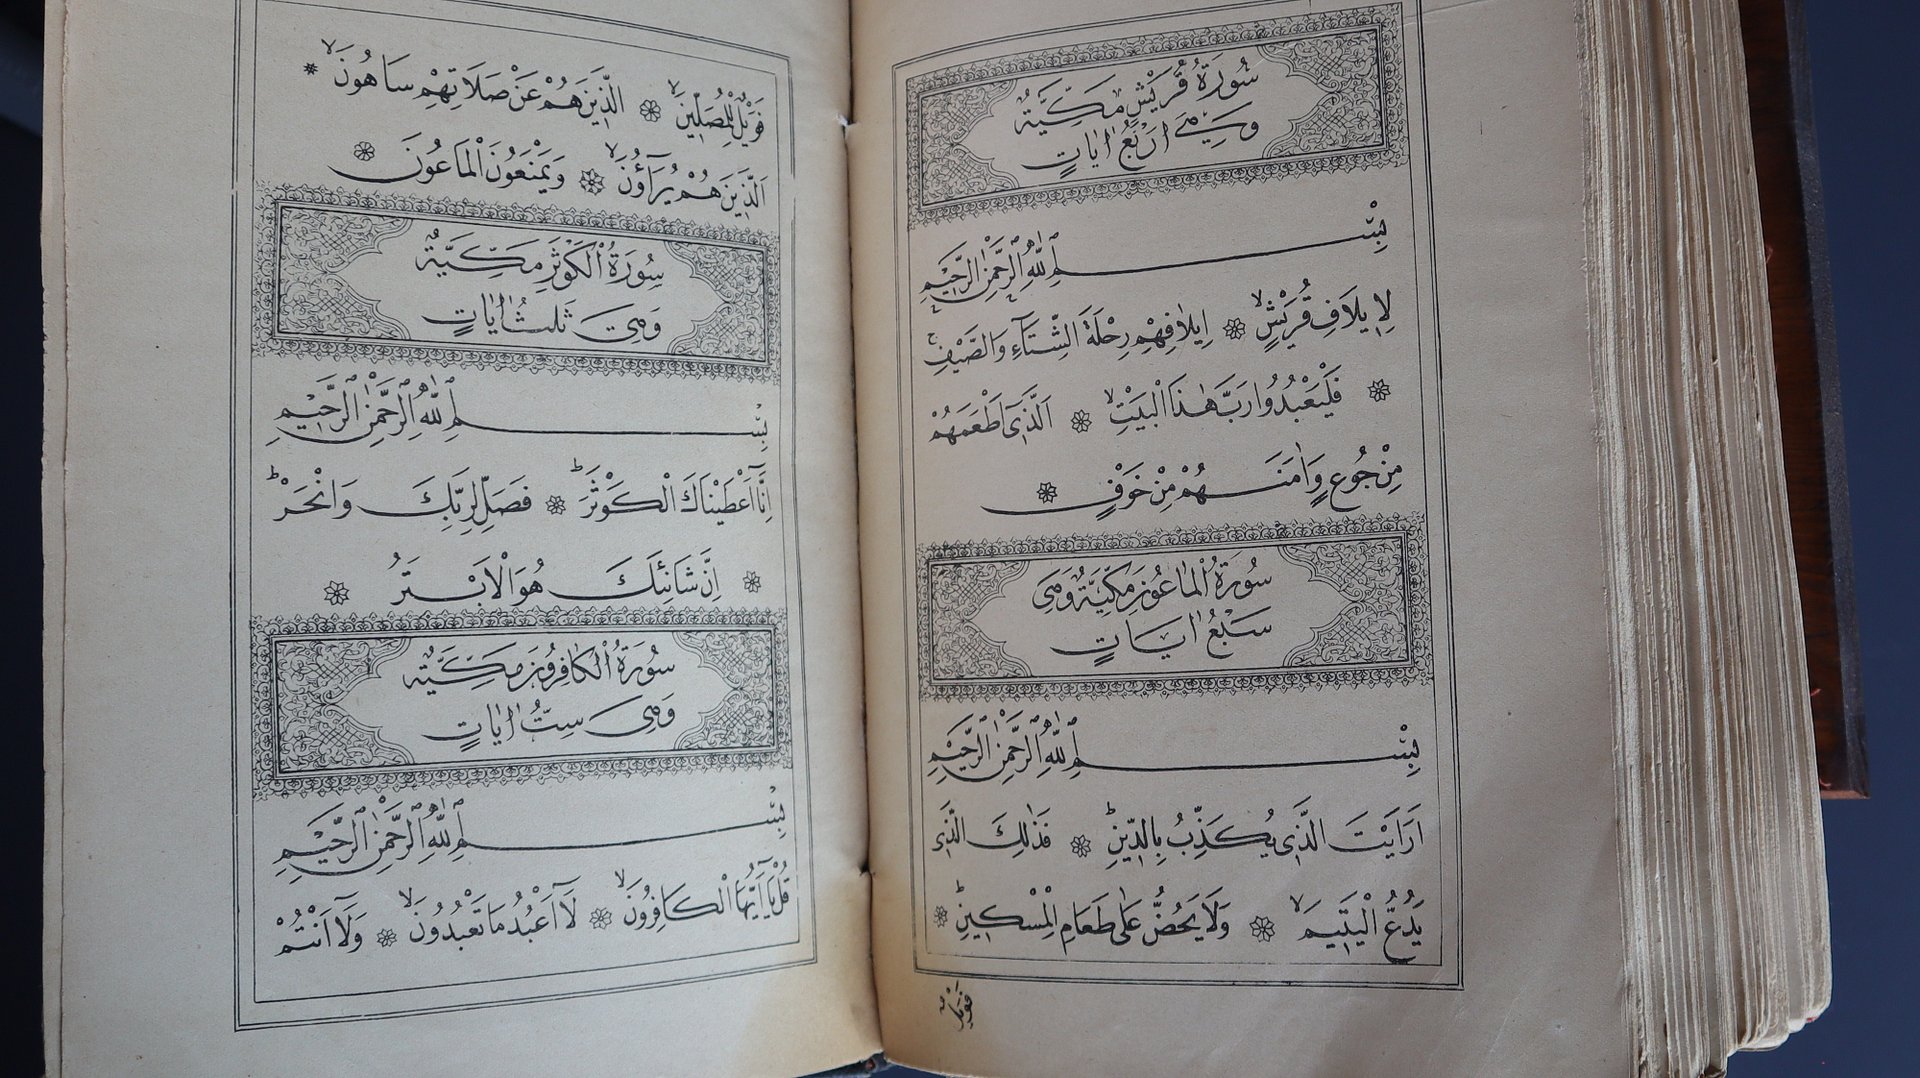 سُورَةُ قُرَيْشٍ مَكِّيَّةٌ
وَهِيَ اَرْبَعُ اٰيَاتٍ
بِسْمِ اللّٰهِ الرَّحْمٰنِ الرَّحِيمِ
لِاِيلَافِ قُرَيْشٍۙ ۞ اِيلَافِهِمْ رِحْلَةَ الشِّتَٓاءِ وَالصَّيْفِۚ
۞ فَلْيَعْبُدُوا رَبَّ هٰذَا الْبَيْتِۙ ۞ اَلَّذٖى اَطْعَمَهُمْ
مِنْ جُوعٍ وَاٰمَنَهُمْ مِنْ خَوْفٍ ۞
سُورَةُ الْمَاعُونَ مَكِّيَّةٌ وَهِىَ
سَبْعُ اٰيَاتٍ
بِسْمِ اللّٰهِ الرَّحْمٰنِ الرَّحِيمِ
اَرَاَيْتَ الَّذٖى يُكَذِّبُ بِالدّٖينِؕ ۞ فَذٰلِكَ الَّذٖى
يَدُعُّ الْيَتٖيمَۙ ۞ وَلَا يَحُضُّ عَلٰى طَعَامِ الْمِسْكٖينِؕ ۞
فَوَيْلٌ
فَوَيْلٌ لِلْمُصَلّٖينَۙ ۞ الَّذٖينَ هُمْ عَنْ صَلَاتِهِمْ سَاهُونَۙ ۞
اَلَّذٖينَ هُمْ يُرَٓاؤُ۫نَۙ ۞ وَيَمْنَعُونَ الْمَاعُونَ ۞
سُورَةُ الْكَوْثَرِ مَكِّيَّةٌ
وَهِىَ ثَلٰثُ اٰيَاتٍ
بِسْمِ اللّٰهِ الرَّحْمٰنِ الرَّحِيمِ
اِنَّٓا اَعْطَيْنَاكَ الْكَوْثَرَؕ ۞ فَصَلِّ لِرَبِّكَ وَانْحَرْؕ
۞ اِنَّ شَانِئَكَ هُوَ الْاَبْتَرُ ۞
سُورَةُ الْكَافِرُونَ مَكِّيَّةٌ
وَهِىَ سِتُّ اٰيَاتٍ
بِسْمِ اللّٰهِ الرَّحْمٰنِ الرَّحِيمِ
قُلْ يَٓا اَيُّهَا الْكَافِرُونَۙ ۞ لَٓا اَعْبُدُ مَا تَعْبُدُونَۙ ۞ وَلَٓا اَنْتُمْ